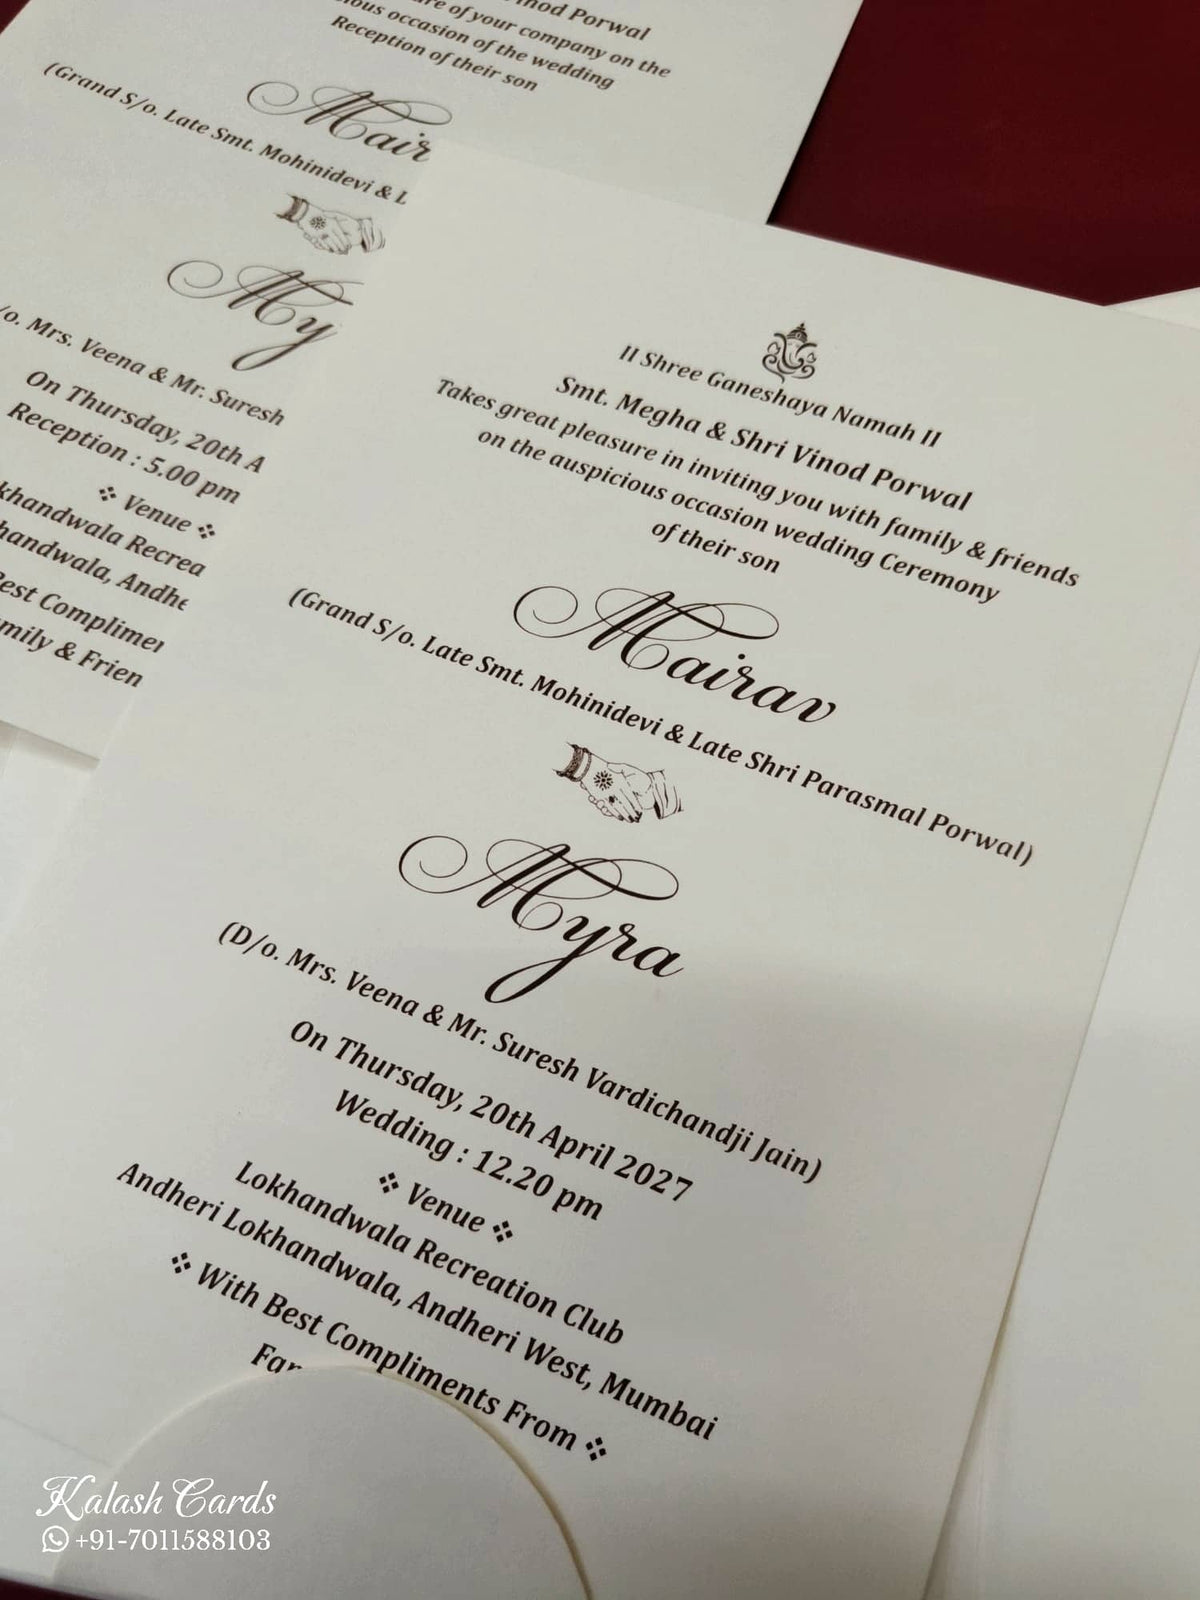 inod Porwal
re of your company on the
ious occasion of the wedding
Reception of their son
Mair
(Grand S/o. Late Smt. Mohinidevi & L
My
/o. Mrs. Veena & Mr. Suresh
On Thursday, 20th A
Reception : 5.00 pm
Venue
khandwala Recrea
handwala, Andhe
est Complimen
mily & Frien
II Shree Ganeshaya Namah II
Smt. Megha & Shri Vinod Porwal
Takes great pleasure in inviting you with family & friends
on the auspicious occasion wedding Ceremony
of their son
Mairav
(Grand S/o. Late Smt. Mohinidevi & Late Shri Parasmal Porwal)
Myra
(D/o. Mrs. Veena & Mr. Suresh Vardichandji Jain)
On Thursday, 20th April 2027
Wedding : 12.20 pm
Venue
Lokhandwala Recreation Club
Andheri Lokhandwala, Andheri West, Mumbai
With Best Compliments From
Kalash Cards
+91-7011588103